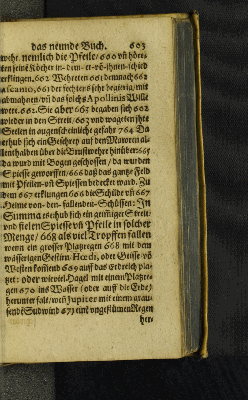 das neunde Buch. 603
wehr. nemlich die Pfeile/ 660 uñ höre-
ten seine Köcher in-dem-er-vō-ihnen-schied
erklingen. 662 Wehreten 661 demnach 662
ascanio, 661 der fechtens sehr begierig/ mit
abmahnen/ uñ das solchs Apollinis Wille
were. 662. Sie aber 667 begaben sich 662
wieder in den Streit/ 663 und wageten ihre
Seelen in augenscheinliche gefahr 764. Da
erhub sich ein Geschrey auf den Mauren al-
lenthalben über die Brustwehr hinüber. 665
da wurd mit Bogen geschossen/ da wurden
Spiesse geworffen/ 666 daß das gantze Feld
mit Pfeilen-uñ Spiessen bedecket ward. Zu
dem 667 erklungen 666 die Schilde uñ 667
Helme von-den-fallenden-Schüssen. Jn
Summa es hub sich ein grimmiger Streit/
und fielen Spiesse uñ Pfeile in solcher
Menge/ 668 als viel Tropffen fallen
wenn ein grosser Platzregen 668 mit dem
wässerigen Gestirn-Hœdi, oder Geisse-vō
Westen kom̃end 669 auf das Erdreich plä-
tzet: oder wieviel Hagel mit einem Platzre-
gen 670 ins Wasser (oder auff die Erde)
herunter falt/ weñ Jupiter mit einem grau-
sendē Sudwind 671 eint ungestümen Regen
her-